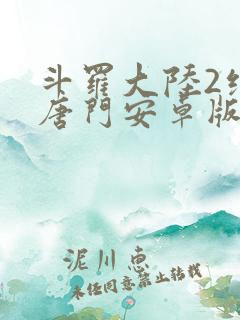 斗羅大陸2
唐門安卓版
泥川恵
未经同意禁止转载